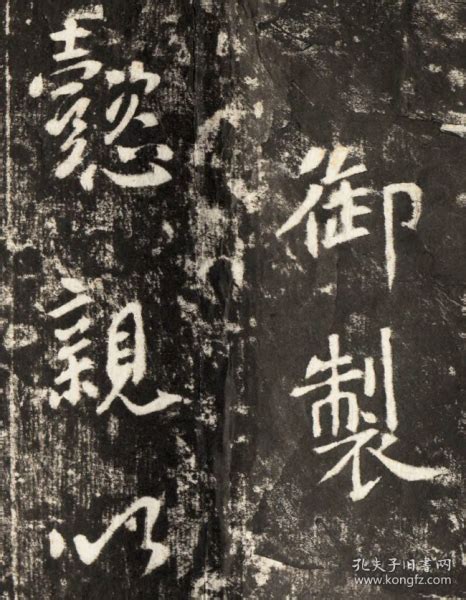 御製
懿親以
孔夫子旧书网
www.kongfz.com